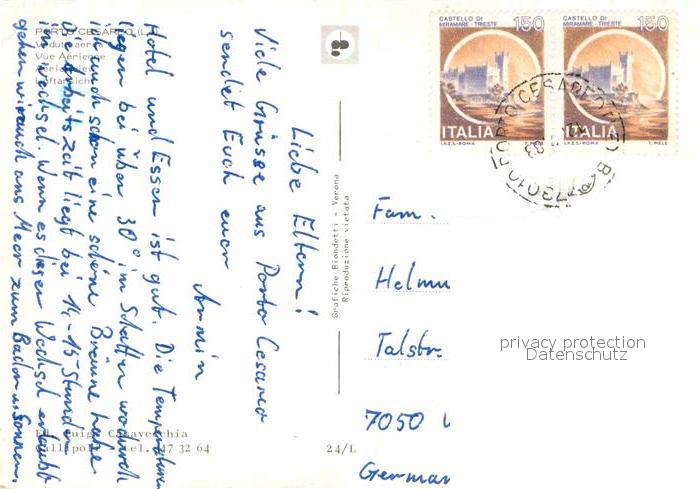 PORTO CESAREO (L
Veduta aerea
Vue Aérienne
Liebe Eltern!
Viele Grüsse aus Porto Cesareo
sendet Euch euer
Armin
Hotel und Essen ist gut. Die Temperaturen
liegen bei über 30° im Schatten wodurch
ich auch schon eine schöne Bräune habe.
Die Arbeitszeit liegt bei 14-15 Stunden
im Wechsel. Wenn es dieser Wechsel erlaubt
gehen wir auch ans Meer zum Baden u. Sonnen.
Ed. Luigi Casavecchia
Gallipoli - tel. 47 32 64
24/L
Grafiche Biondetti - Verona
Riproduzione vietata
CASTELLO DI
MIRAMARE - TRIESTE
150
ITALIA
I.P.Z.S. - ROMA
CASTELLO DI
MIRAMARE - TRIESTE
150
ITALIA
I.P.Z.S. - ROMA
T. MELE
73010 PORTO CESAREO
Fam.
Helmu
Talstr.
7050
German
privacy protection
Datenschutz